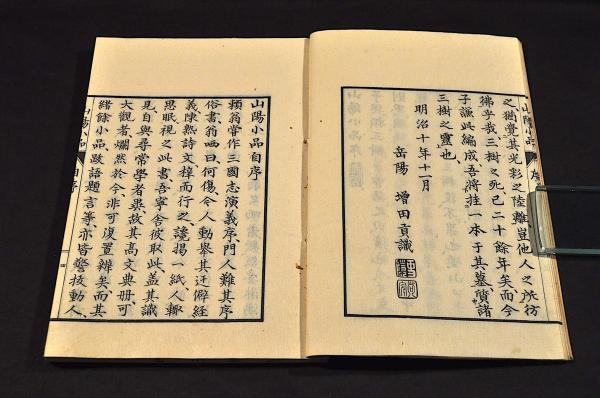 山陽小品 序
之猶覺其光彩之陸離豈他人之所彷
彿乎哉、三樹之死已二十餘年矣而今
子謙此編成、吾將挂一本于其墓質諸
三樹之靈也、
明治十年十一月
岳陽 增田貢識
山陽小品自序
賴翁嘗作三國志演義序、門人難其序
俗書、翁哂曰、何傷、今人動舉其迂僻經
義陳熟詩文、而行之、纔揭一紙、人輒
思眠、視之此書、吾寧舍彼取此、蓋其識
見、自與尋常學者異、故其高文典冊可
大觀者、爛然於今、非可復置辨矣、而其
緒餘小品、跋語題言等、亦皆警拔動人、
山陽小品 自序